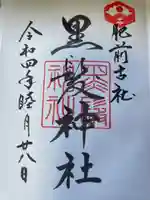 肥前古社
黒髪神社
令和四年睦月廿八日